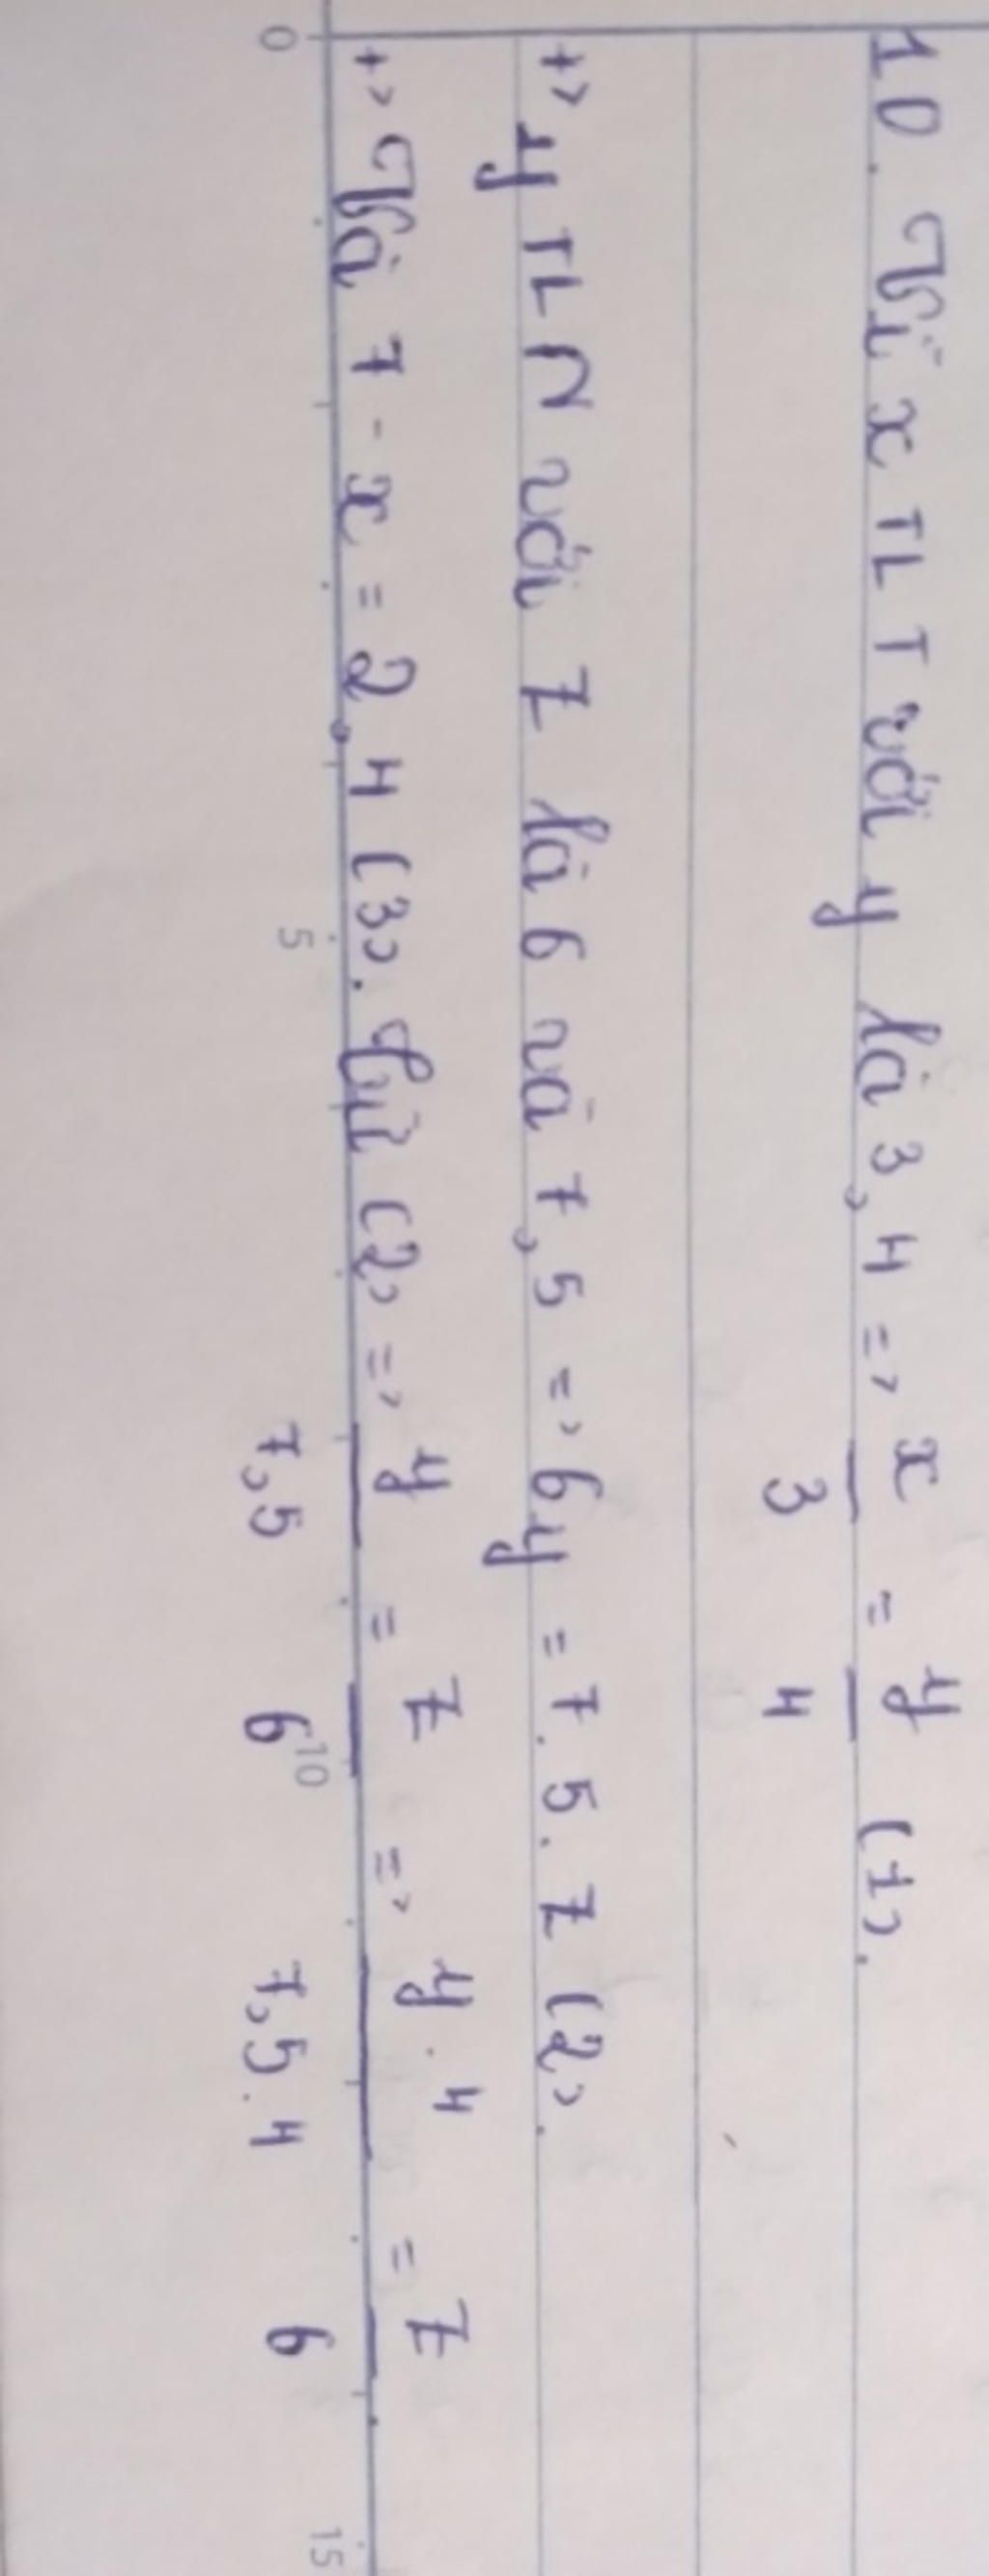 10. Vì x TLT với y là 3,4 => x/3 = y/4 (1).
+> y TLN với Z là 6 và 7,5 => 6y = 7.5.Z (2).
+> Và 7 - x = 2,4 (3). Từ (2) => y/7,5 = Z/6 => y.4/7,5.4 = Z/6.
0 5 10 15